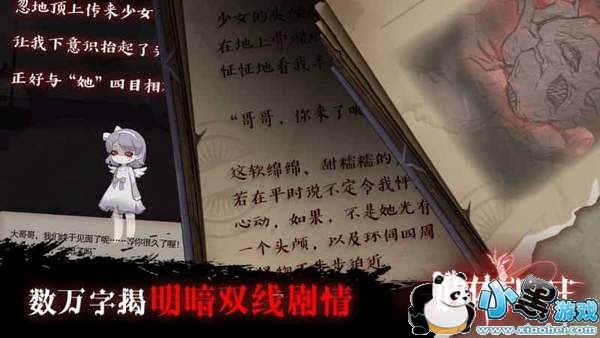 忽地顶上传来少女
让我下意识抬起了头
正好与“她”四目相
少女的头颅
在地上骨碌
怔怔地看我
“哥哥，你来了呢
这软绵绵、甜糯糯的
若在平时说不定令我怦
心动，如果，不是她光有
一个头颅，以及环伺四周
步步迫近
大哥哥，我们终于见面了呢……等你很久了喔！
数万字揭明暗双线剧情
小黑游戏
www.xiaohei.com